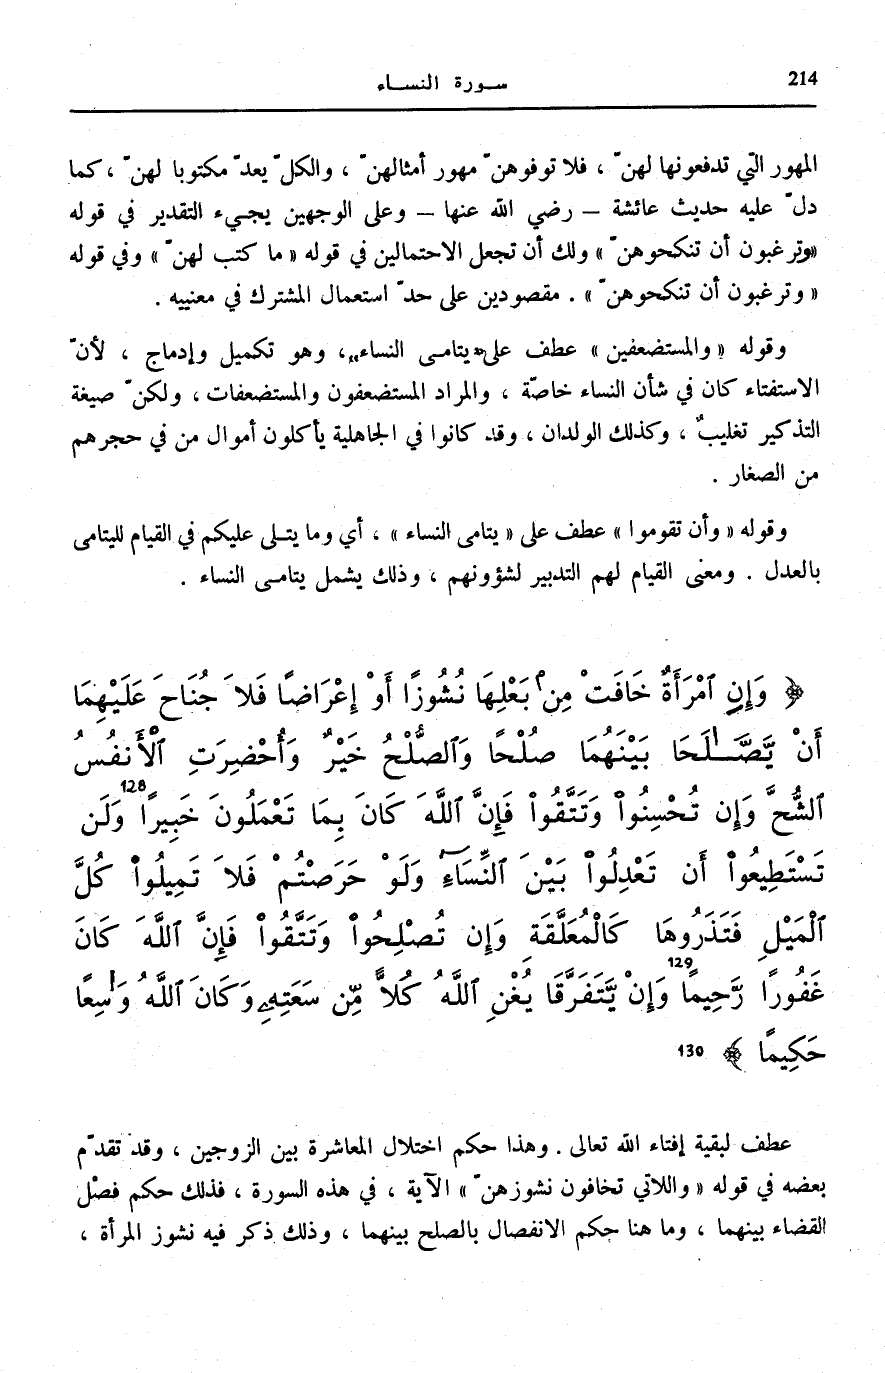 214
سورة النساء
المهور التي تدفعونها لهنّ ، فلا توفوهنّ مهور أمثالهنّ ، والكلّ يعدّ مكتوبا لهنّ ، كما
دلّ عليه حديث عائشة – رضي الله عنها – وعلى الوجهين يجيء التقدير في قوله
«وترغبون أن تنكحوهنّ » ولك أن تجعل الاحتمالين في قوله « ما كتب لهنّ » وفي قوله
« وترغبون أن تنكحوهنّ » . مقصودين على حدّ استعمال المشترك في معنييه .
وقوله « والمستضعفين » عطف على «يتامى النساء» ، وهو تكميل وإدماج ، لأنّ
الاستفتاء كان في شأن النساء خاصّة ، والمراد المستضعفون والمستضعفات ، ولكنّ صيغة
التذكير تغليبٌ ، وكذلك الولدان ، وقد كانوا في الجاهلية يأكلون أموال من في حجرهم
من الصغار .
وقوله « وأن تقوموا » عطف على « يتامى النساء » ، أي وما يتلى عليكم في القيام لليتامى
بالعدل . ومعنى القيام لهم التدبير لشؤونهم ، وذلك يشمل يتامى النساء .
﴿ وَإِنِ ٱمْرَأَةٌ خَافَتْ مِنۢ بَعْلِهَا نُشُوزًا أَوْ إِعْرَاضًا فَلاَ جُنَاحَ عَلَيْهِمَا
أَنْ يَّصَّـٰلَحَا بَيْنَهُمَا صُلْحًا وَٱلصُّلْحُ خَيْرٌ وَأُحْضِرَتِ ٱلْأَنفُسُ
ٱلشُّحَّ وَإِن تُحْسِنُواْ وَتَتَّقُواْ فَإِنَّ ٱللَّهَ كَانَ بِمَا تَعْمَلُونَ خَبِيرًا 128 وَلَن
تَسْتَطِيعُواْ أَن تَعْدِلُواْ بَيْنَ ٱلنِّسَآءِ وَلَوْ حَرَصْتُمْ فَلاَ تَمِيلُواْ كُلَّ
ٱلْمَيْلِ فَتَذَرُوهَا كَالْمُعَلَّقَةِ وَإِن تُصْلِحُواْ وَتَتَّقُواْ فَإِنَّ ٱللَّهَ كَانَ
غَفُورًا رَّحِيمًا 129 وَإِنْ يَّتَفَرَّقَا يُغْنِ ٱللَّهُ كُلاًّ مِّن سَعَتِهِۦ وَكَانَ ٱللَّهُ وَٰسِعًا
حَكِيمًا ﴾ 130
عطف لبقية إفتاء الله تعالى . وهذا حكم اختلال المعاشرة بين الزوجين ، وقد تقدّم
بعضه في قوله « واللاتي تخافون نشوزهنّ » الآية ، في هذه السورة ، فذلك حكم فصْل
القضاء بينهما ، وما هنا حكم الانفصال بالصلح بينهما ، وذلك ذكر فيه نشوز المرأة ،